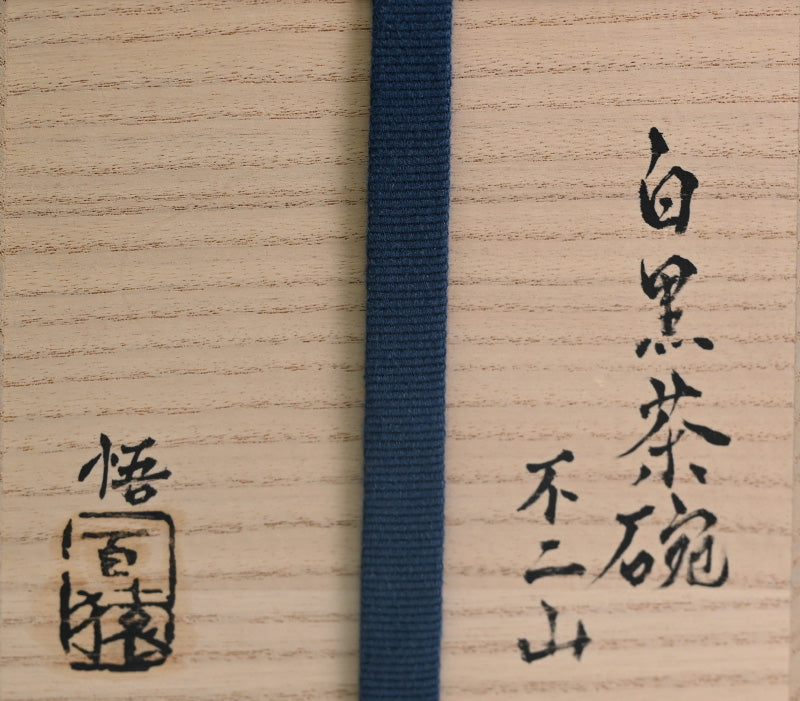 白黒茶碗
不二山
悟
百猿